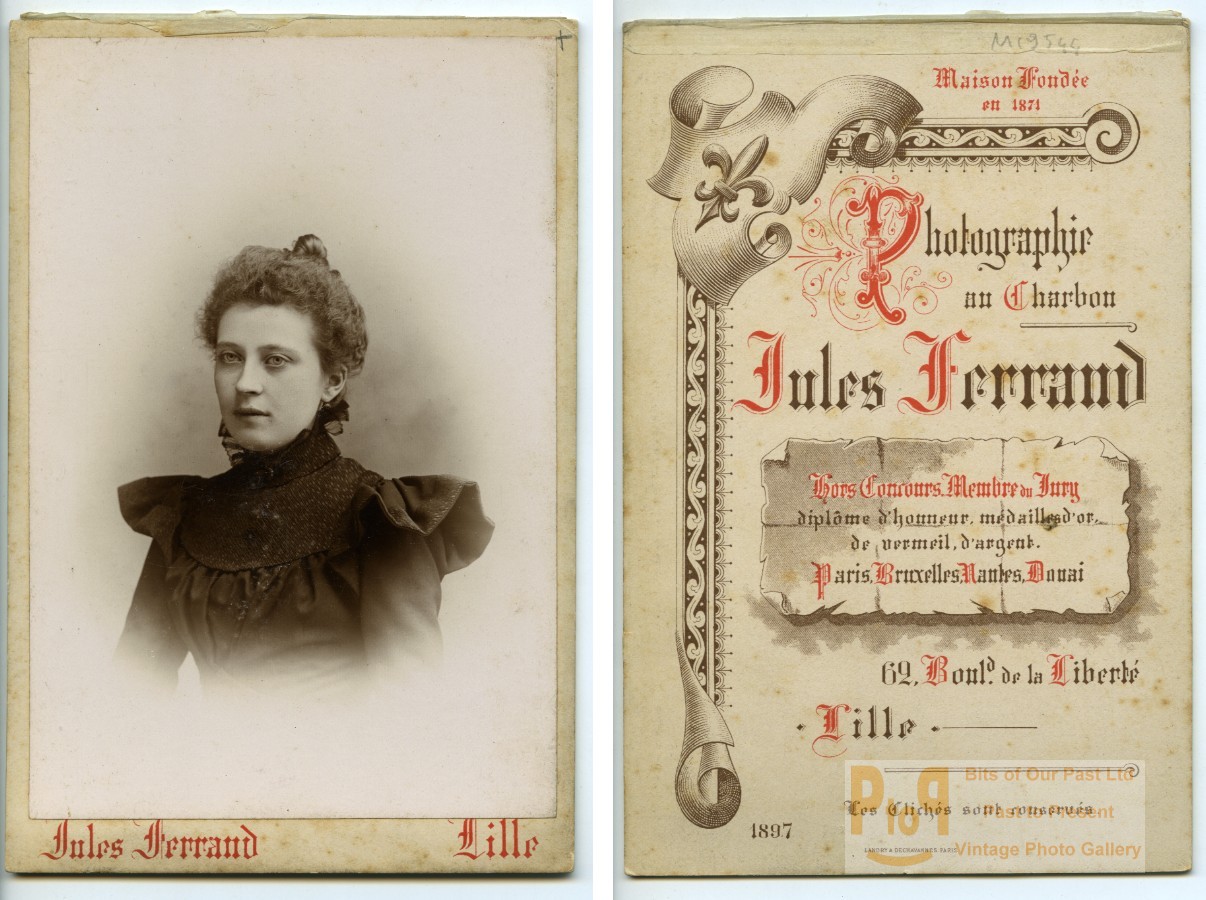 Jules Ferrand Lille
Maison Fondée
en 1871
Photographie
au Charbon
Jules Ferrand
Hors Concours. Membre du Jury
diplôme d'honneur, médailles d'or,
de vermeil, d'argent.
Paris, Bruxelles, Nantes, Douai
62, Boul.d de la Liberté
Lille
Les Clichés sont conservés
1897
Bits of Our Past Ltd
Past to Present
Vintage Photo Gallery